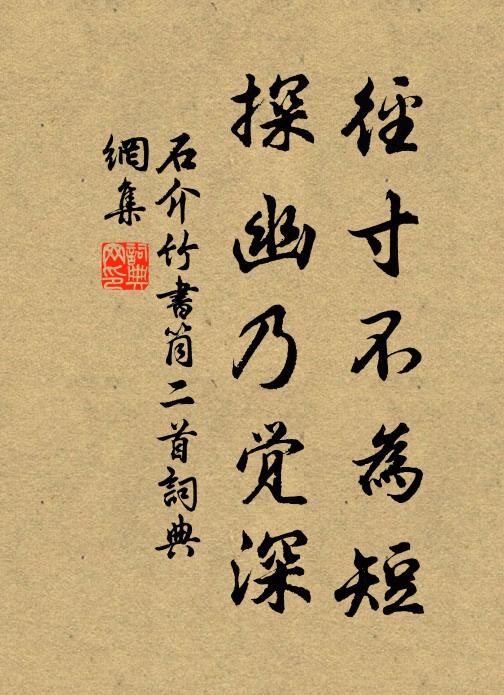 徑寸不為短
探幽乃覺深
石介竹書筒二首詞典
網集
詞典
网印